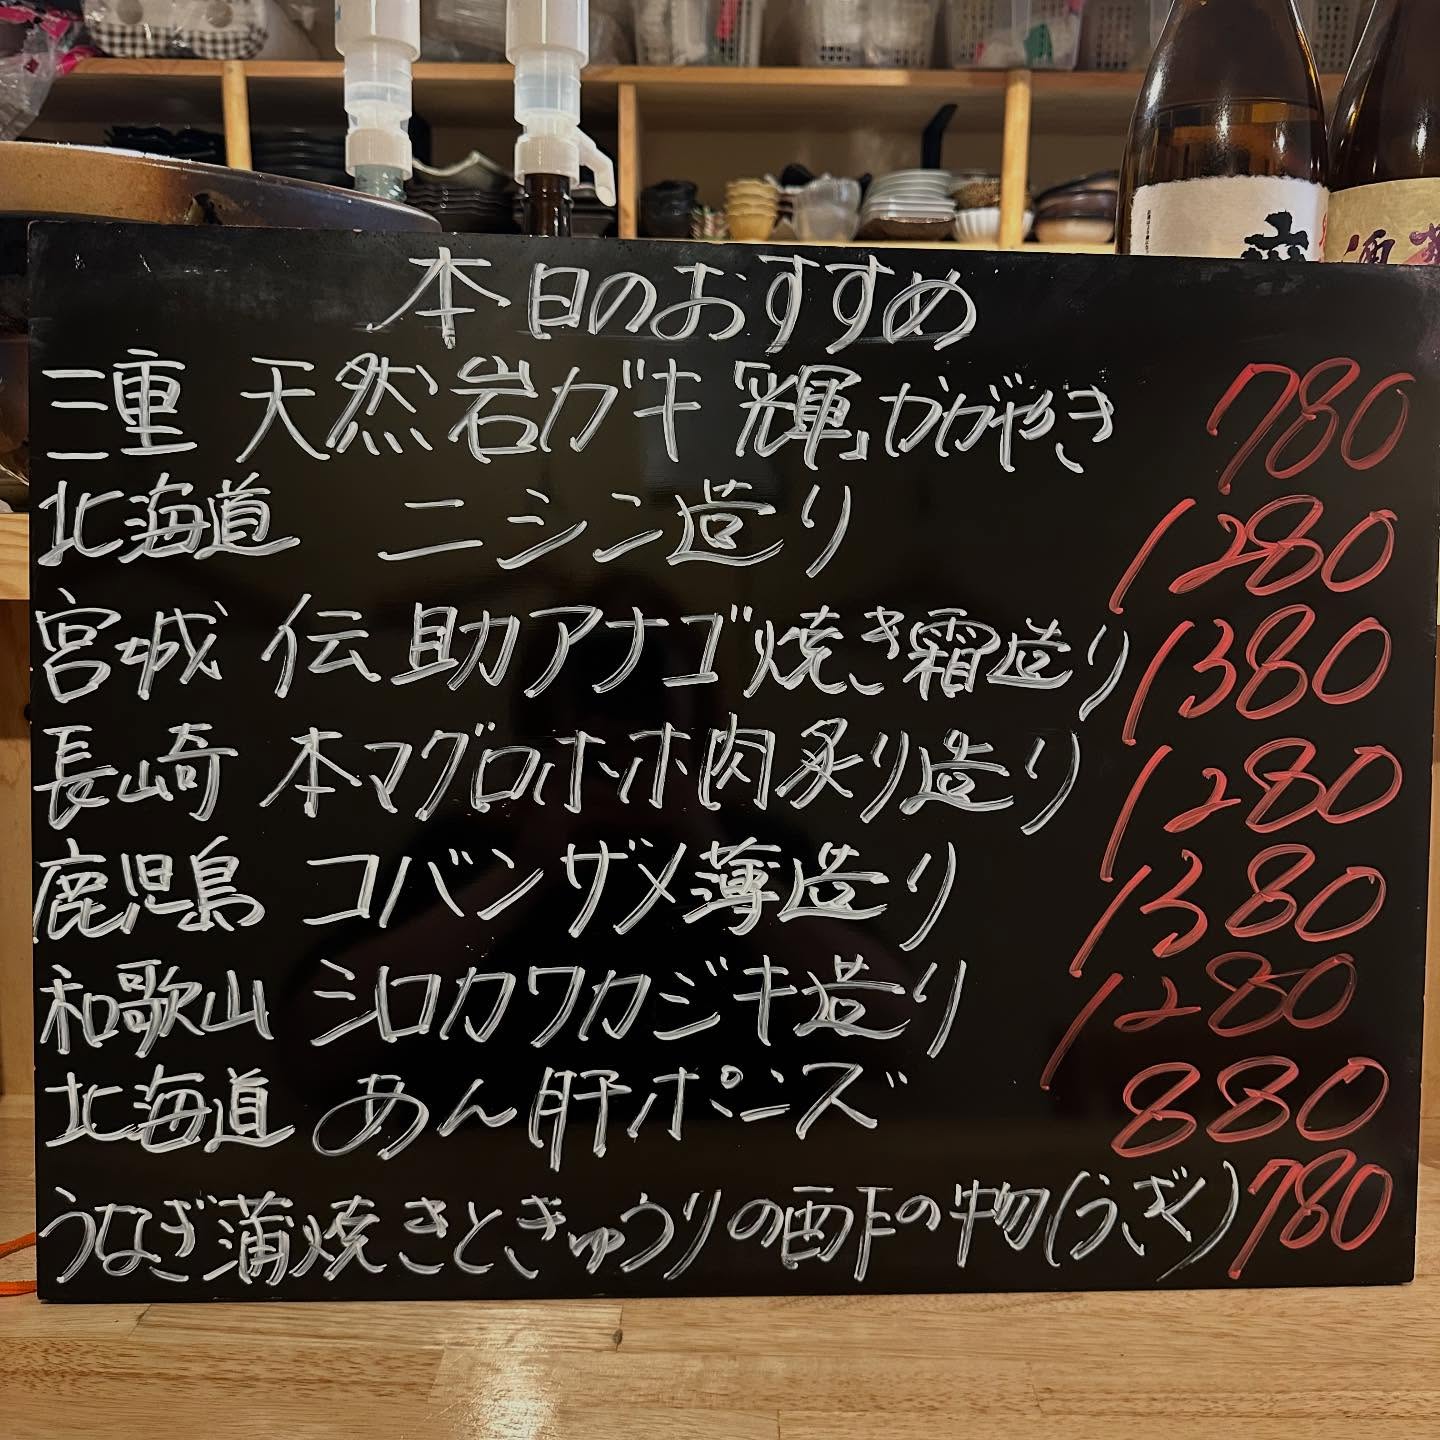 本日のおすすめ
三重 天然岩ガキ「輝」かがやき 780
北海道 ニシン造り 1280
宮城 伝助アナゴ焼き霜造り 1380
長崎 本マグロホホ肉炙り造り 1280
鹿児島 コバンザメ薄造り 1380
和歌山 シロカワカジキ造り 1280
北海道 あん肝ポンズ 880
うなぎ蒲焼きときゅうりの酢の物(うざく) 780